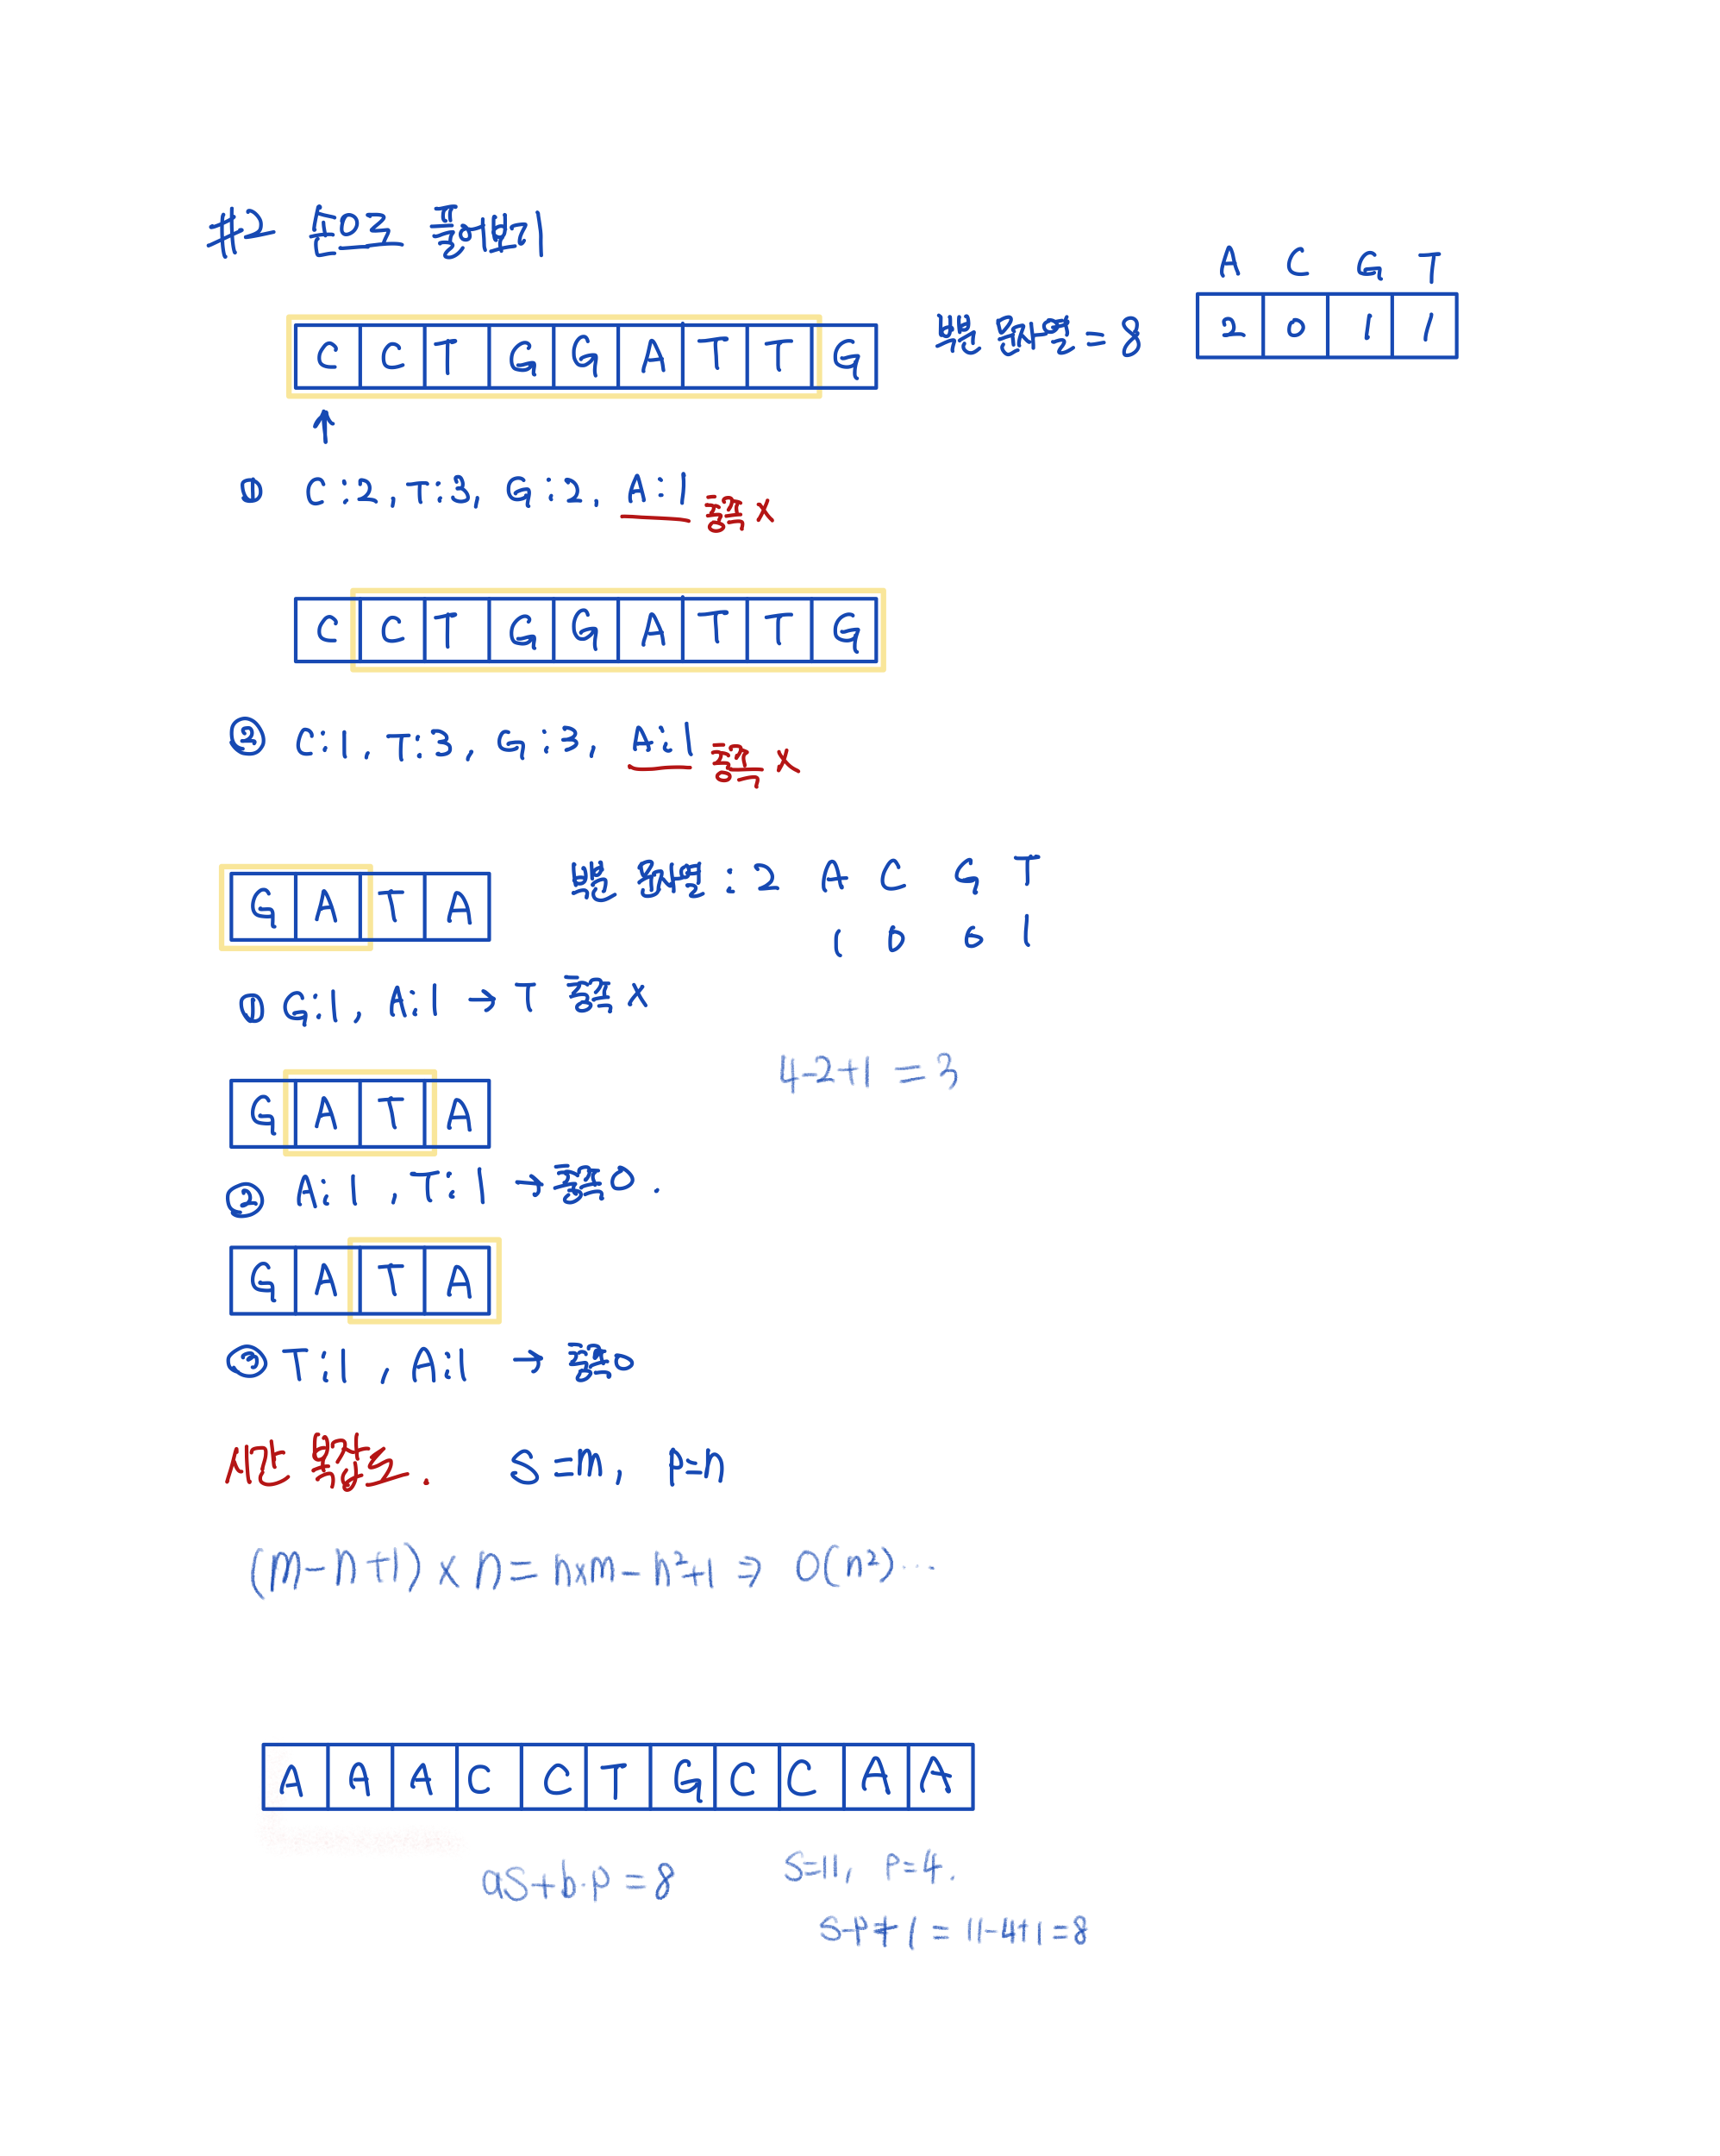 #2 손으로 풀어보기
A C G T
C C T G G A T T G 부분 문자열 = 8 2 0 1 1
↑
① C:2, T:3, G:2, A:1 충족 x
C C T G G A T T G
② C:1, T:3, G:3, A:1 충족 x
부분 문자열 : 2 A C G T
G A T A
1 0 0 1
① G:1, A:1 → T 충족 x
4-2+1 = 3
G A T A
② A:1, T:1 → 충족 O.
G A T A
③ T:1, A:1 → 충족 O
시간 복잡도. S=m, P=n
(m-n+1) x n = nxm - n²+1 ⇒ O(n²)...
A A A C C T G C C A A
aS+b·P = 8
S=11, P=4.
S-P+1 = 11-4+1=8